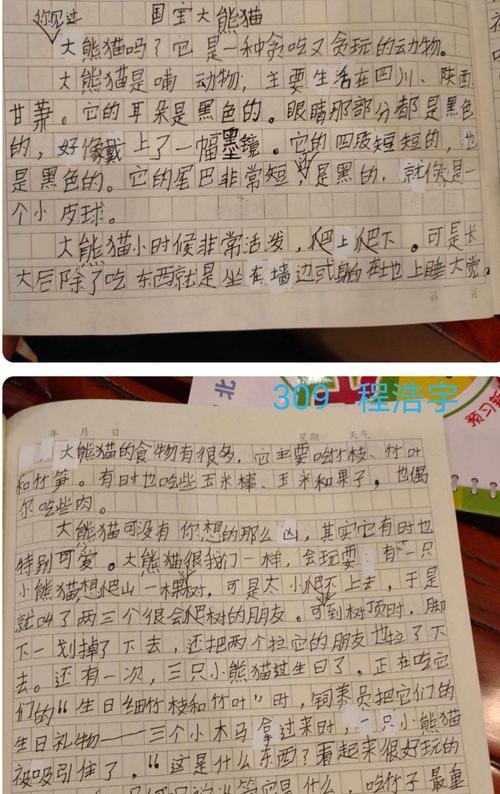 国宝大熊猫
你见过
大熊猫吗？它是一种贪吃又贪玩的动物。
大熊猫是哺动物，主要生活在四川、陕西
甘肃。它的耳朵是黑色的。眼睛那部分都是黑色
的，好像戴上了一幅墨镜。它的四肢短短的，也
是黑色的。它的尾巴非常短，是黑的，就像是一
个小皮球。
大熊猫小时候非常活泼，爬上爬下。可是长
大后除了吃东西就是坐在墙边或躺在地上睡大觉。
309 程浩宇
年 月 日 星期 天气
大熊猫的食物有很多，它主要吃竹枝、竹叶
和竹笋。有时也吃些玉米棒、玉米和果子，也偶
尔吃些肉。
大熊猫可没有你想的那么凶，其实它有时也
特别可爱。大熊猫很我们一样，会玩耍。有一只
小熊猫想爬山一棵树，可是太小爬不上去，于是
就叫了两三个很会爬树的朋友。可到树顶时，脚
下一划掉了下去，还把两个拉它的朋友也拉了下
去。还有一次，三只小熊猫过生日了。正在吃它
们的“生日细竹枝和竹叶”时，饲养员把它们的
生日礼物——三个小木马拿过来时，一只小熊猫
被吸引住了，“这是什么东西？看起来很好玩的
是什么，吃竹子最重
北
预习